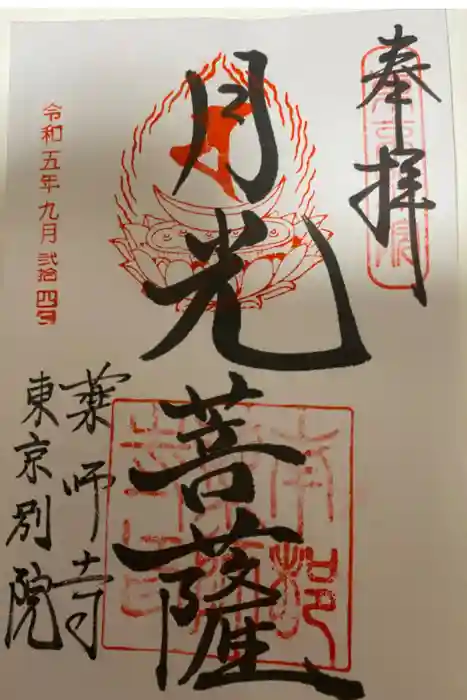 奉拝
月光菩薩
令和五年九月弐拾四日
薬師寺
東京別院